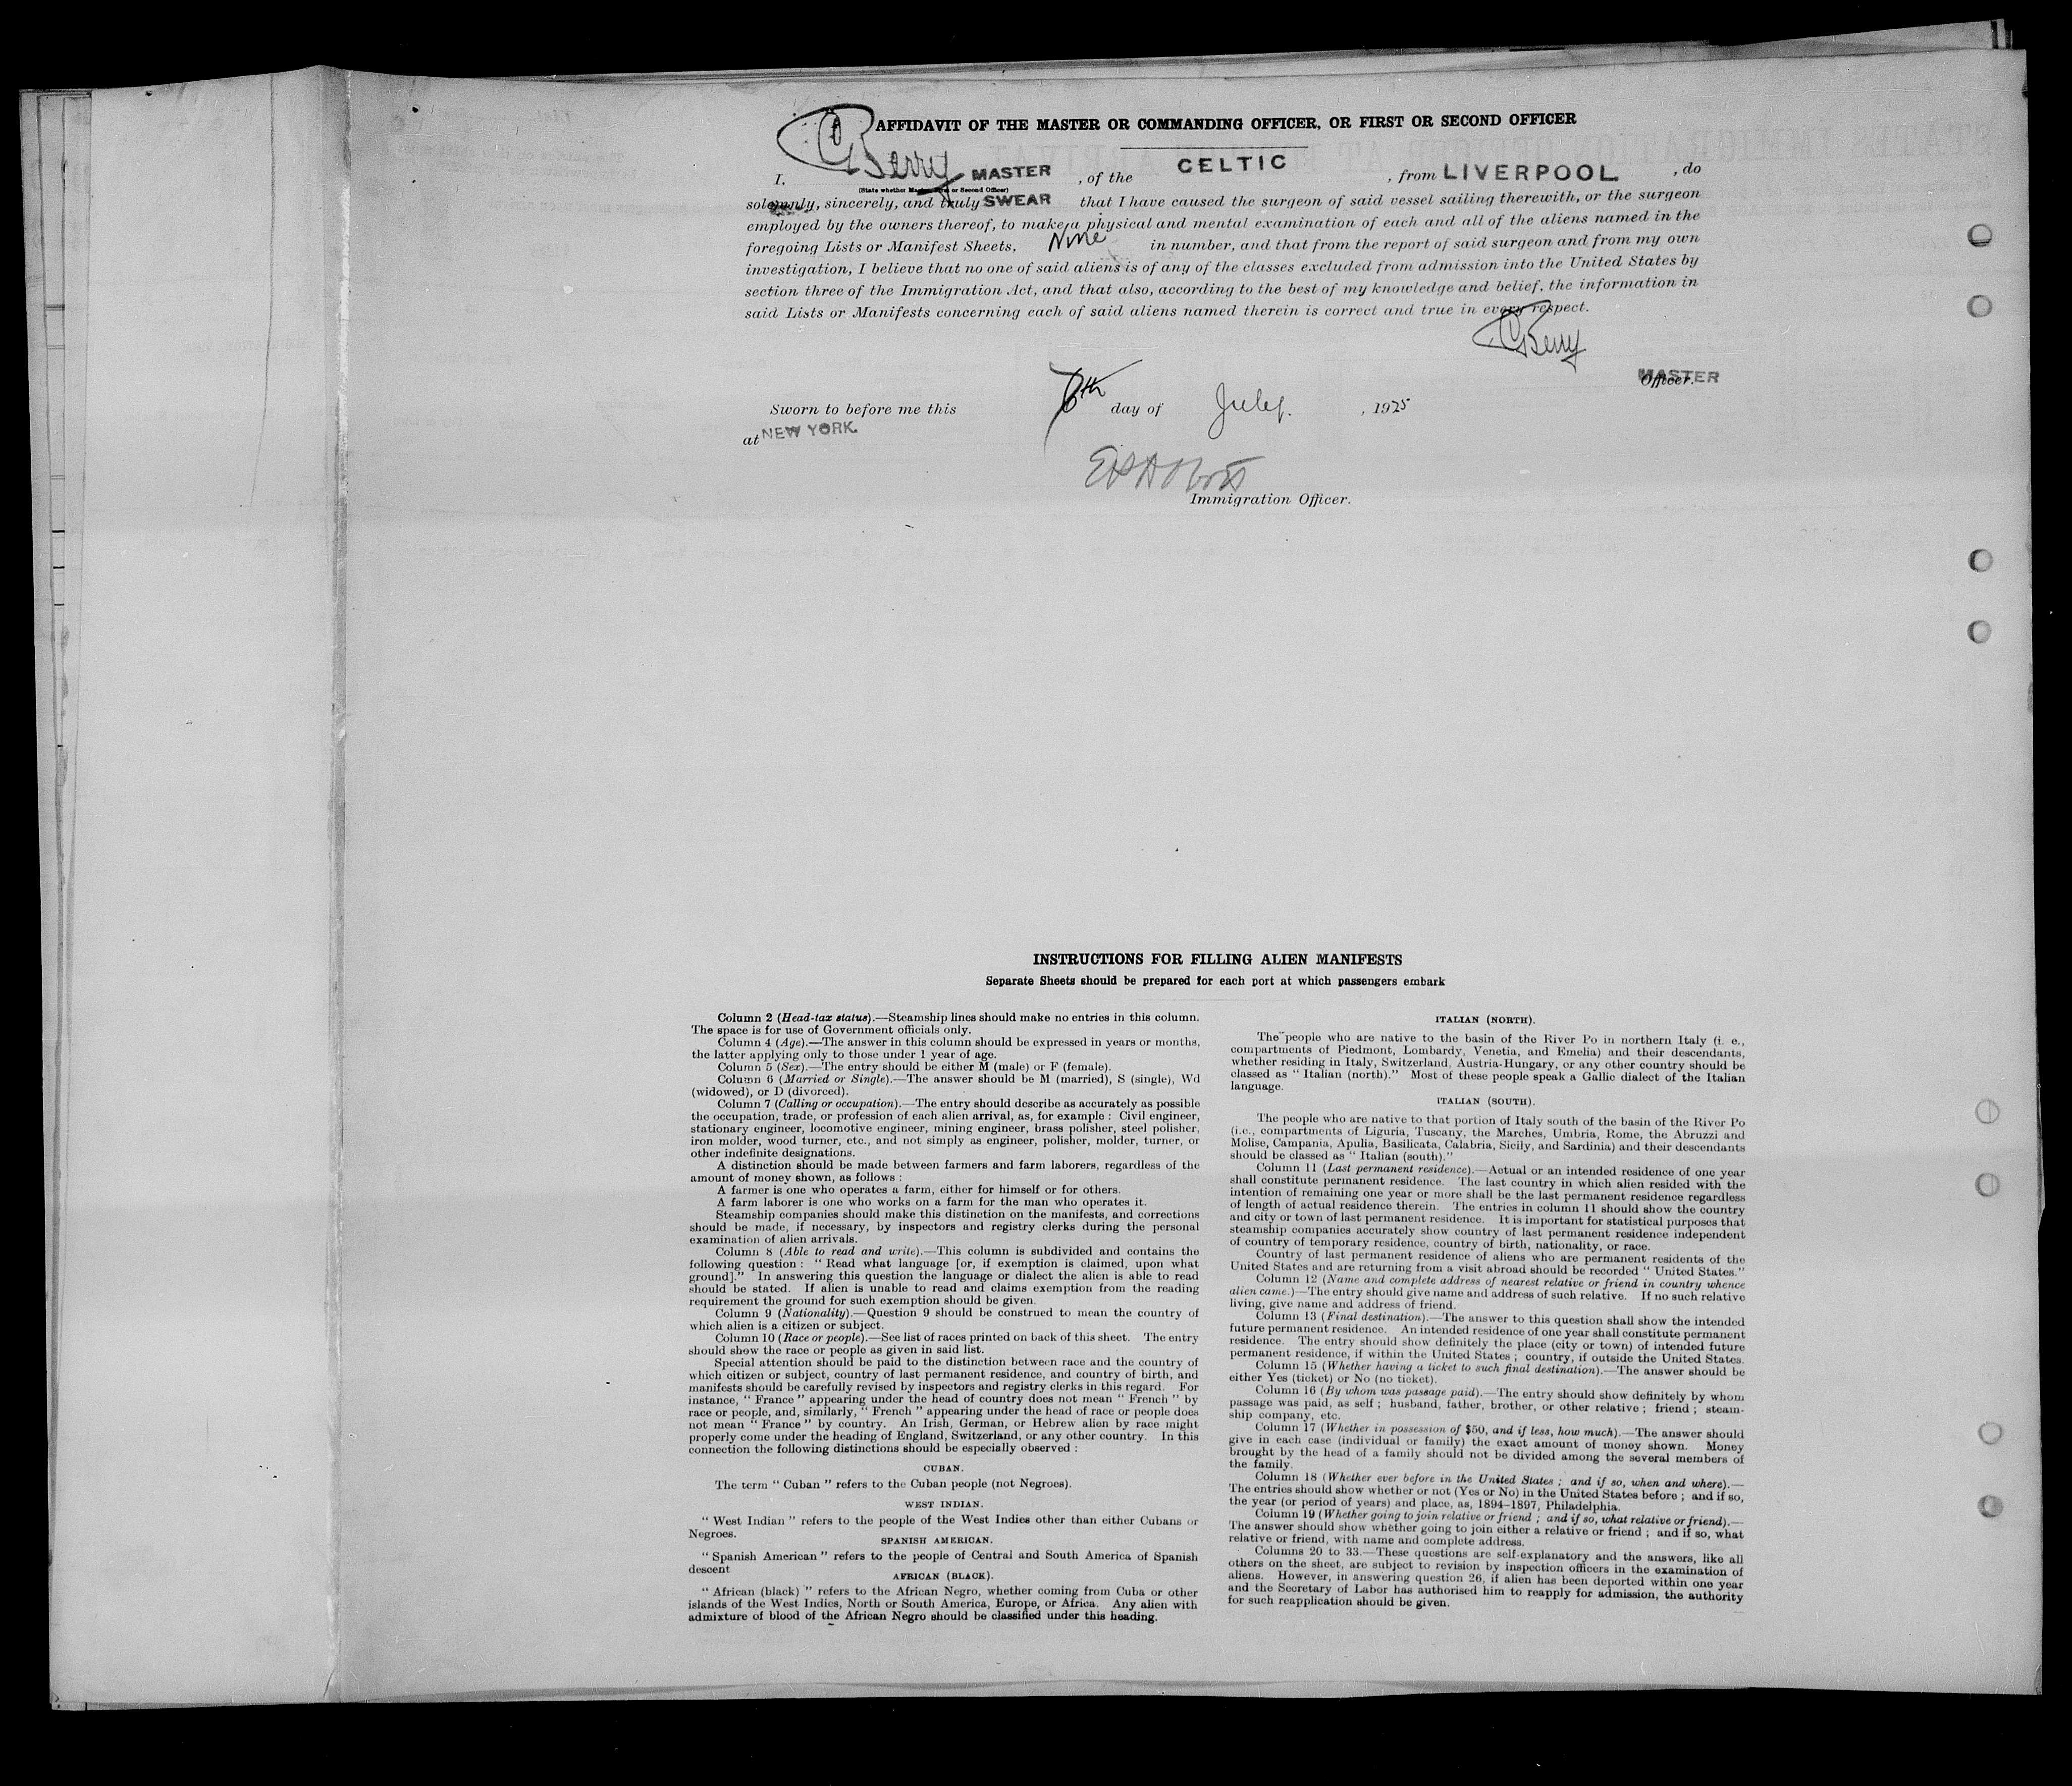 AFFIDAVIT OF THE MASTER OR COMMANDING OFFICER, OR FIRST OR SECOND OFFICER
I, C Berry MASTER, of the CELTIC, from LIVERPOOL, do
(State whether Master, First or Second Officer)
solemnly, sincerely, and truly SWEAR that I have caused the surgeon of said vessel sailing therewith, or the surgeon
employed by the owners thereof, to make a physical and mental examination of each and all of the aliens named in the
foregoing Lists or Manifest Sheets, in number, and that from the report of said surgeon and from my own
investigation, I believe that no one of said aliens is of any of the classes excluded from admission into the United States by
section three of the Immigration Act, and that also, according to the best of my knowledge and belief, the information in
said Lists or Manifests concerning each of said aliens named therein is correct and true in every respect.
C Berry
MASTER
Officer.
Sworn to before me this 6th day of July, 1925
at NEW YORK.
Immigration Officer.
INSTRUCTIONS FOR FILLING ALIEN MANIFESTS
Separate Sheets should be prepared for each port at which passengers embark
Column 2 (Head-tax status).—Steamship lines should make no entries in this column.
The space is for use of Government officials only.
Column 4 (Age).—The answer in this column should be expressed in years or months,
the latter applying only to those under 1 year of age.
Column 5 (Sex).—The entry should be either M (male) or F (female).
Column 6 (Married or Single).—The answer should be M (married), S (single), Wd
(widowed), or D (divorced).
Column 7 (Calling or occupation).—The entry should describe as accurately as possible
the occupation, trade, or profession of each alien arrival, as, for example : Civil engineer,
stationary engineer, locomotive engineer, mining engineer, brass polisher, steel polisher,
iron molder, wood turner, etc., and not simply as engineer, polisher, molder, turner, or
other indefinite designations.
A distinction should be made between farmers and farm laborers, regardless of the
amount of money shown, as follows :
A farmer is one who operates a farm, either for himself or for others.
A farm laborer is one who works on a farm for the man who operates it.
Steamship companies should make this distinction on the manifests, and corrections
should be made, if necessary, by inspectors and registry clerks during the personal
examination of alien arrivals.
Column 8 (Able to read and write).—This column is subdivided and contains the
following question : " Read what language [or, if exemption is claimed, upon what
ground]." In answering this question the language or dialect the alien is able to read
should be stated. If alien is unable to read and claims exemption from the reading
requirement the ground for such exemption should be given.
Column 9 (Nationality).—Question 9 should be construed to mean the country of
which alien is a citizen or subject.
Column 10 (Race or people).—See list of races printed on back of this sheet. The entry
should show the race or people as given in said list.
Special attention should be paid to the distinction between race and the country of
which citizen or subject, country of last permanent residence, and country of birth, and
manifests should be carefully revised by inspectors and registry clerks in this regard. For
instance, " France " appearing under the head of country does not mean " French " by
race or people, and, similarly, " French " appearing under the head of race or people does
not mean " France " by country. An Irish, German, or Hebrew alien by race might
properly come under the heading of England, Switzerland, or any other country. In this
connection the following distinctions should be especially observed :
CUBAN.
The term " Cuban " refers to the Cuban people (not Negroes).
WEST INDIAN.
" West Indian " refers to the people of the West Indies other than either Cubans or
Negroes.
SPANISH AMERICAN.
" Spanish American " refers to the people of Central and South America of Spanish
descent
AFRICAN (BLACK).
" African (black) " refers to the African Negro, whether coming from Cuba or other
islands of the West Indies, North or South America, Europe, or Africa. Any alien with
admixture of blood of the African Negro should be classified under this heading.
ITALIAN (NORTH).
The people who are native to the basin of the River Po in northern Italy (i. e.,
compartments of Piedmont, Lombardy, Venetia, and Emelia) and their descendants,
whether residing in Italy, Switzerland, Austria-Hungary, or any other country should be
classed as " Italian (north)." Most of these people speak a Gallic dialect of the Italian
language.
ITALIAN (SOUTH).
The people who are native to that portion of Italy south of the basin of the River Po
(i.e., compartments of Liguria, Tuscany, the Marches, Umbria, Rome, the Abruzzi and
Molise, Campania, Apulia, Basilicata, Calabria, Sicily, and Sardinia) and their descendants
should be classed as " Italian (south)."
Column 11 (Last permanent residence).—Actual or an intended residence of one year
shall constitute permanent residence. The last country in which alien resided with the
intention of remaining one year or more shall be the last permanent residence regardless
of length of actual residence therein. The entries in column 11 should show the country
and city or town of last permanent residence. It is important for statistical purposes that
steamship companies accurately show country of last permanent residence independent
of country of temporary residence, country of birth, nationality, or race.
Country of last permanent residence of aliens who are permanent residents of the
United States and are returning from a visit abroad should be recorded " United States."
Column 12 (Name and complete address of nearest relative or friend in country whence
alien came.)—The entry should give name and address of such relative. If no such relative
living, give name and address of friend.
Column 13 (Final destination).—The answer to this question shall show the intended
future permanent residence. An intended residence of one year shall constitute permanent
residence. The entry should show definitely the place (city or town) of intended future
permanent residence, if within the United States ; country, if outside the United States.
Column 15 (Whether having a ticket to such final destination).—The answer should be
either Yes (ticket) or No (no ticket).
Column 16 (By whom was passage paid).—The entry should show definitely by whom
passage was paid, as self ; husband, father, brother, or other relative ; friend ; steam-
ship company, etc.
Column 17 (Whether in possession of $50, and if less, how much).—The answer should
give in each case (individual or family) the exact amount of money shown. Money
brought by the head of a family should not be divided among the several members of
the family.
Column 18 (Whether ever before in the United States ; and if so, when and where).—
The entries should show whether or not (Yes or No) in the United States before ; and if so,
the year (or period of years) and place, as, 1894–1897, Philadelphia.
Column 19 (Whether going to join relative or friend ; and if so, what relative or friend).—
The answer should show whether going to join either a relative or friend ; and if so, what
relative or friend, with name and complete address.
Columns 20 to 33.—These questions are self-explanatory and the answers, like all
others on the sheet, are subject to revision by inspection officers in the examination of
aliens. However, in answering question 26, if alien has been deported within one year
and the Secretary of Labor has authorised him to reapply for admission, the authority
for such reapplication should be given.